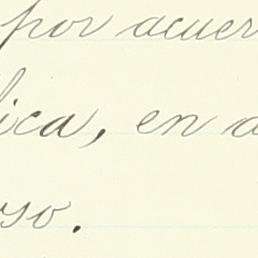 por acuer
lica, en a
so.